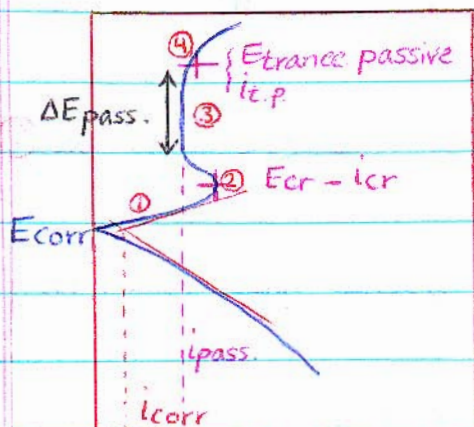 ④ Etrance passive
it.p.
ΔEpass. ③
② Ecr - icr
①
Ecorr
ipass.
icorr